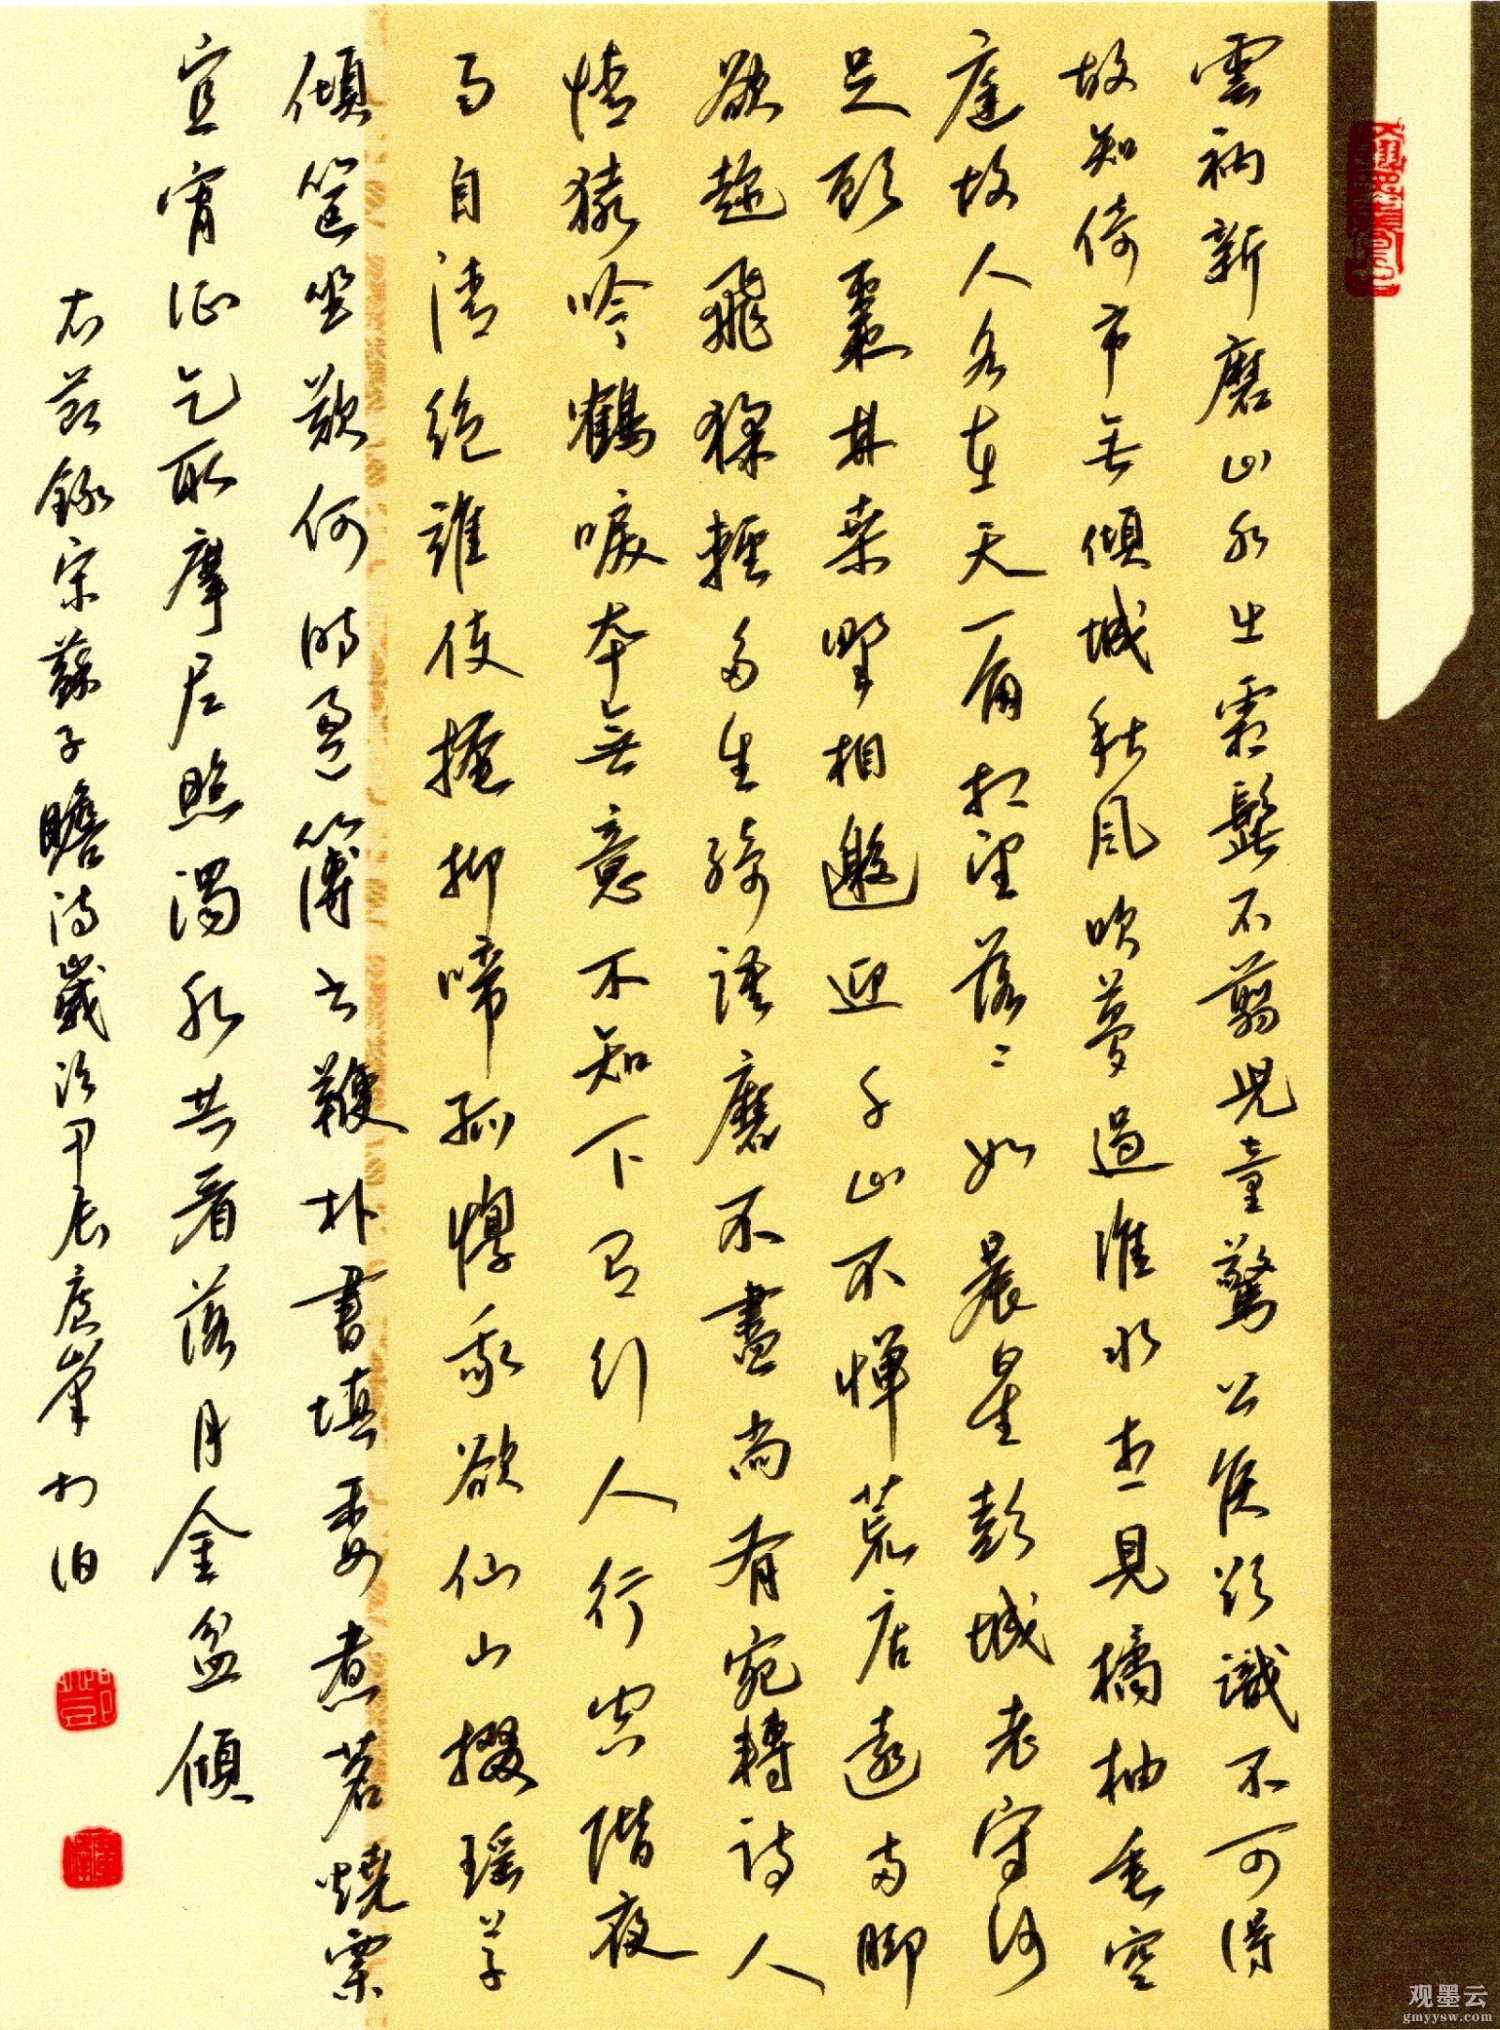 雲衲新磨山水出霜髭不翦兒童驚公侯欲識不可得
故知倚市無傾城秋風吹夢過淮水想見橘柚垂空
庭故人各在天一角相望落々如晨星彭城老守何
足顧棗林桑野相邀迎千山不憚荒店遠兩腳
欲趁飛猱輕多生綺語磨不盡尚有宛轉詩人
情猿吟鶴唳本無意不知下有引人行空階夜
雨自清絕誰使掩抑啼孤惸我欲仙山掇瑤草
傾筐坐歎何時盈簿書鞭朴晝填委煮茗燒栗
宜宵征乞取摩尼照濁水共看落月金盆傾
右節錄宋蘇子瞻詩歲次甲辰
观墨云
gmyysw.com